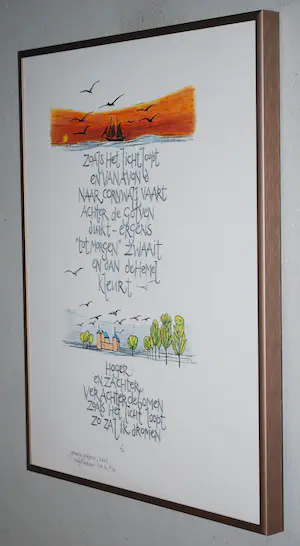 ZOALS HET LICHT LOOPT
EN VANAVOND
NAAR CORNWALL VAART
ACHTER DE GOLVEN
DUIKT - ERGENS
"TOT MORGEN" ZWAAIT
EN DAN DE HEMEL
KLEURT -
HOGER
EN ZACHTER
VER ACHTER DE BOMEN
ZOALS HET LICHT LOOPT
ZO ZAL IK DROMEN